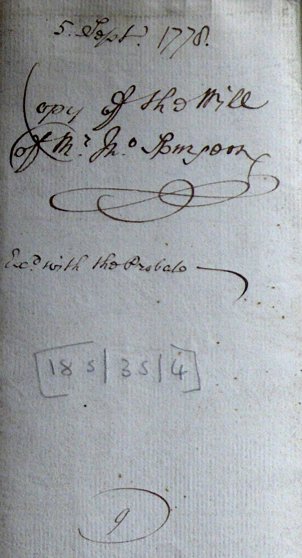 5. Sept.r 1778.
Copy of the Will
of Mr. Jno. Simpson
Exd. with the Probate
[185/35/4]
9